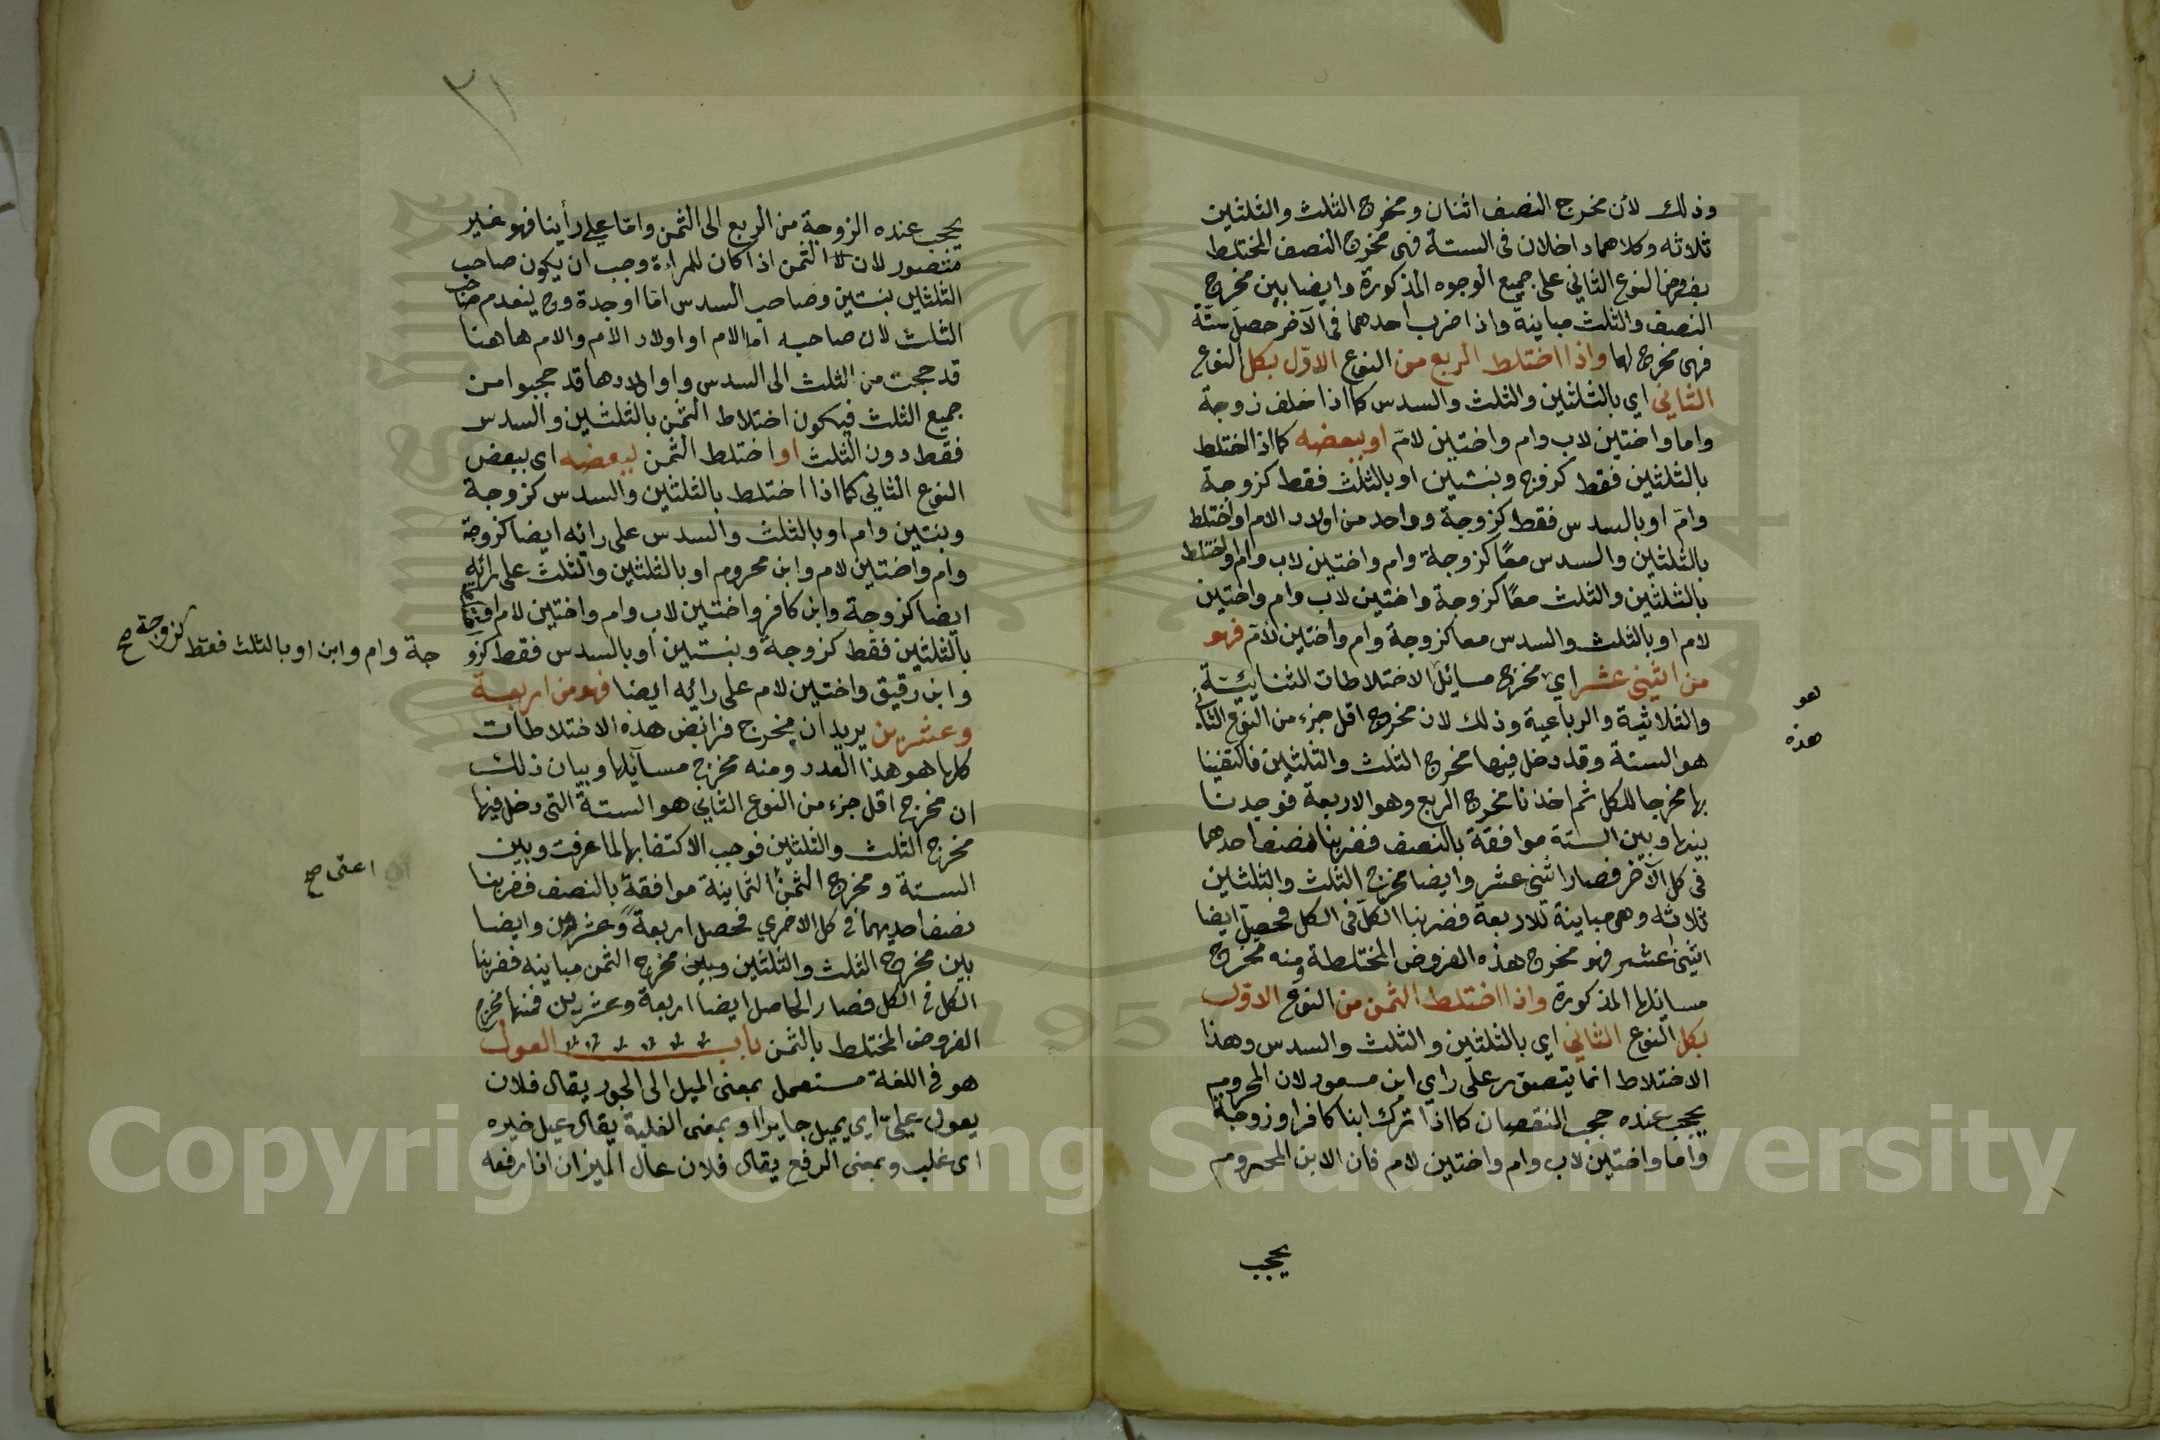 وذلك لان مخرج النصف اثنان ومخرج الثلث والثلثين
ثلاثه وكلاهما داخلان فى الستة فهى مخرج النصف المختلط
بفروض النوع الثاني على جميع الوجوه المذكورة وايضا بين مخرج
النصف والثلث مباينة واذا ضرب احدهما فى الآخر حصل ستة
فهى مخرج لهما واذا اختلط الربع من النوع الاوّل بكل النوع
الثاني اي بالثلثين والثلث والسدس كما اذا خلف زوجة
واما واختين لاب وام واختين لامّ او ببعضه كما اذا اختلط
بالثلثين فقط كزوج وبنتين او بالثلث فقط كزوجة
وامّ او بالسدس فقط كزوجة وواحد من اولاد الام او اختلط
بالثلثين والسدس معًا كزوجة وام واختين لاب وام او اختلط
بالثلثين والثلث معًا كزوجة واختين لاب وام واختين
لام او بالثلث والسدس معا كزوجة وام واختين لامّ فهو
من اثنى عشر اي مخرج مسائل الاختلاطات الثنائيّة
والثلاثية والرباعية وذلك لان مخرج اقل جزء من النوع الثاني
هو الستة وقد دخل فيها مخرج الثلث والثلثين فاكتفينا
بها مخرجا للكل ثم اخذنا مخرج الربع وهو الاربعة فوجدنا
بينها وبين الستة موافقة بالنصف فضربنا نصف احدهما
فى كل الآخر فصار اثنى عشر وايضا مخرج الثلث والثلثين
ثلاثه وهى مباينة للاربعة فضربنا الكل فى الكل فحصل ايضا
اثنى عشر فهو مخرج هذه الفروض المختلطة ومنه مخرج
مسائلها المذكورة واذا اختلط الثمن من النوع الاوّل
بكل النوع الثاني اي بالثلثين والثلث والسدس وهذا
الاختلاط انما يتصور على راي ابن مسعود لان المحروم
يحجب عنده حجب النقصان كما اذا ترك ابنا كافرا وزوجة
واما واختين لاب وام واختين لام فان الابن المحروم
يحجب
هو
هذه
٣١
يحجب عنده الزوجة من الربع الى الثمن واما على رأينا فهو غير
متصور لان الثمن اذا كان للمراءة وجب ان يكون صاحب
الثلثين بنتين وصاحب السدس اما او جدة وح ينعدم صاحب
الثلث لان صاحبه اما الام او اولاد الام والام هاهنا
قد حجبت من الثلث الى السدس واولادها قد حجبوا من
جميع الثلث فيكون اختلاط الثمن بالثلثين والسدس
فقط دون الثلث او اختلط الثمن ببعضه اى ببعض
النوع الثاني كما اذا اختلط بالثلثين والسدس كزوجة
وبنتين وام او بالثلث والسدس على رائه ايضا كزوجة
وام واختين لام وابن محروم او بالثلثين والثلث على رائه
ايضا كزوجة وابن كافر واختين لاب وام واختين لام او
بالثلثين فقط كزوجة وبنتين او بالسدس فقط كزو
جة وام وابن او بالثلث فقط كزوجة صح
وابن رقيق واختين لام على رائه ايضا فهو من اربعة
وعشرين يريد ان مخرج فرائض هذه الاختلاطات
كلها هو هذا العدد ومنه مخرج مسائلها وبيان ذلك
ان مخرج اقل جزء من النوع الثاني هو الستة التى دخل فيها
مخرج الثلث والثلثين فوجب الاكتفا بها لما عرفت وبين
الستة ومخرج الثمن الثمانية موافقة بالنصف فضربنا
اعنى صح
نصف احديهما فى كل الاخري فحصل اربعة وعشرون وايضا
بين مخرج الثلث والثلثين وبين مخرج الثمن مباينه فضربنا
الكل فى الكل فصار الحاصل ايضا اربعة وعشرين فمنها مخرج
الفروض المختلط بالثمن باب العول
هو فى اللغة مستعمل بمعنى الميل الى الجور يقال فلان
يعول عليّ اى يميل جايرا او بمعنى الغلبة يقال عيل صبره
اى غلب وبمعنى الرفع يقال فلان عال الميزان اذا رفعه
1957
Copyright © King Saud University